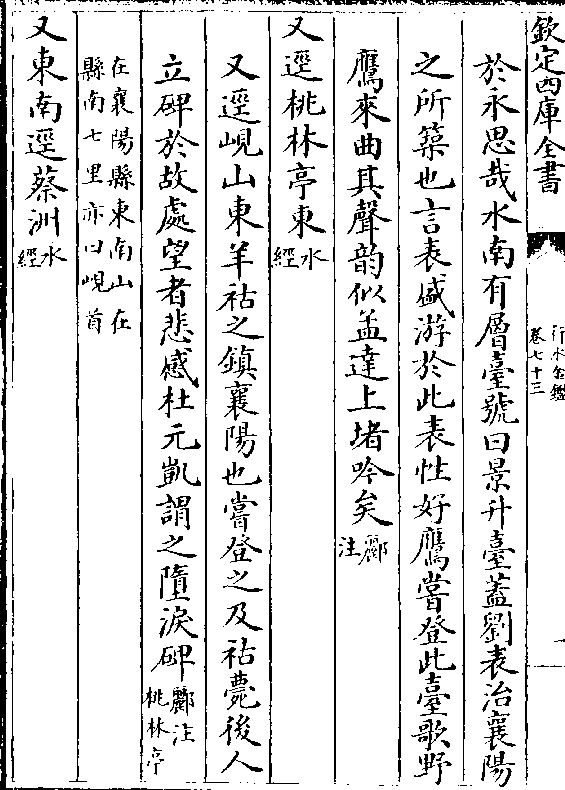 欽定四庫全書
行水金鑑
卷七十三
於永思哉水南有層臺號曰景升臺蓋劉表治襄陽
之所築也言表盛游於此表性好鷹嘗登此臺歌野
鷹來曲其聲韵似孟達上堵吟矣酈注
又逕桃林亭東水經
又逕峴山東羊祜之鎮襄陽也嘗登之及祜薨後人
立碑於故處望者悲感杜元凱謂之墮淚碑酈注桃林亭
在襄陽縣東南山在
縣南七里亦曰峴首
又東南逕蔡洲水經